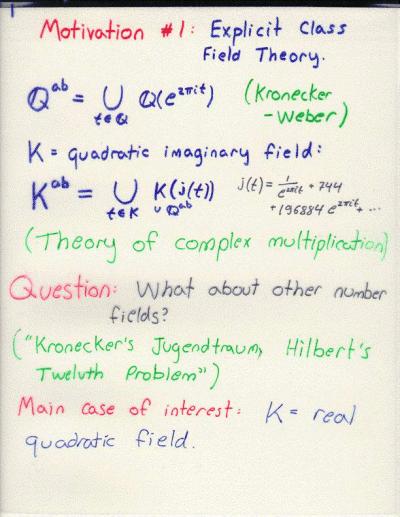 Motivation #1: Explicit Class
Field Theory.
Q^ab = ∪_{t∈Q} Q(e^{2πit}) (Kronecker
-Weber)
K = quadratic imaginary field:
K^ab = ∪_{t∈K} K(j(t)) ∪ Q^ab j(t) = 1/e^{2πit} + 744
+ 196884 e^{2πit} + ...
(Theory of complex multiplication)
Question: What about other number
fields?
("Kronecker's Jugendtraum, Hilbert's
Twelvth Problem")
Main case of interest: K = real
quadratic field.